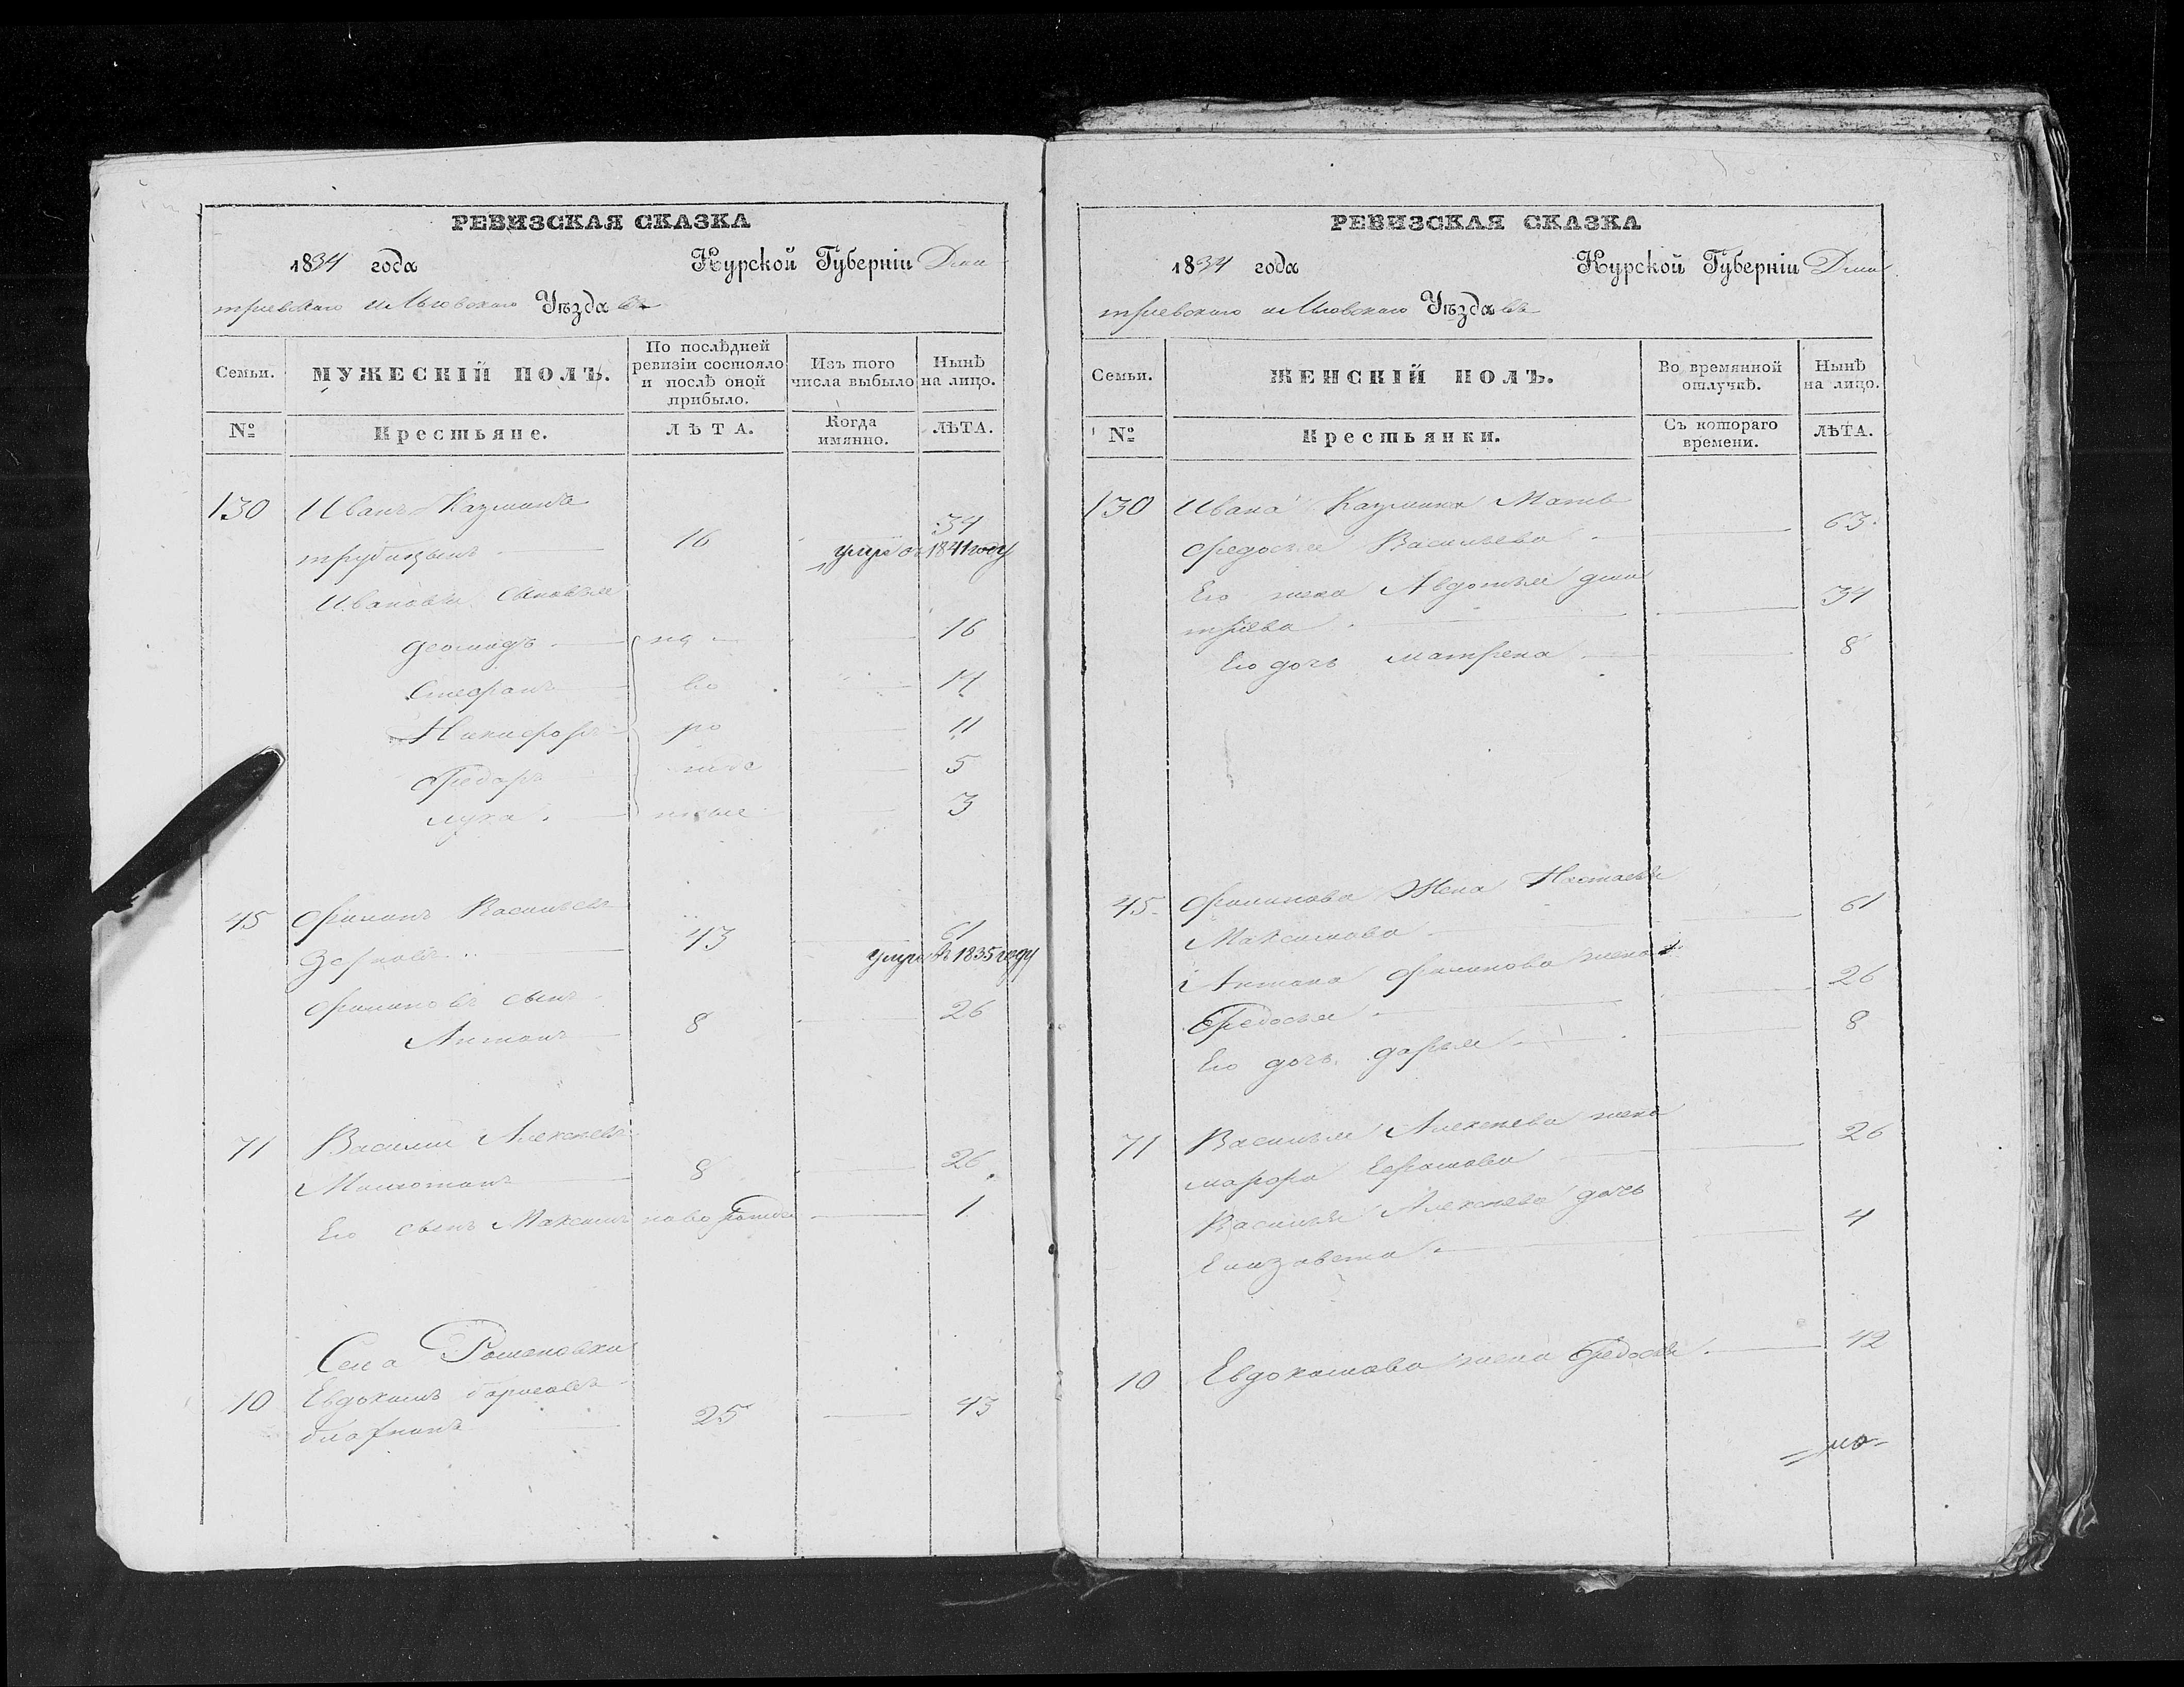 РЕВИЗСКАЯ СКАЗКА
1834 года Курской Губерніи Дми
тріевскаго и Льговскаго Уѣзда въ
Семьи. МУЖЕСКІЙ ПОЛЪ. По послѣдней ревизіи состояло и послѣ оной прибыло. Изъ того числа выбыло Нынѣ на лицо.
№ Крестьяне. ЛѢТА. Когда имянно. ЛѢТА.
130 Иванъ Казминъ
трубицынъ 16 34
умре въ 1841 году
Ивановы Сыновья
Деомидъ но 16
Стефанъ во 14
Никифоръ ро 11
Федоръ жде 5
Лука нные 3
45 Филипъ Васильевъ
Зерновъ 43 61
умре въ 1835 году
Филиповъ сынъ
Антонъ 8 26
71 Василий Алексеевъ
8 26
Его сынъ Максимъ новорожде 1
Села Романовки
10 Евдокимъ Борисовъ
25 43
РЕВИЗСКАЯ СКАЗКА
1834 года Курской Губерніи Дми
тріевскаго и Льговскаго Уѣзда въ
Семьи. ЖЕНСКІЙ ПОЛЪ. Во времянной отлучкѣ. Нынѣ на лицо.
№ Крестьянки. Съ котораго времени. ЛѢТА.
130 Ивана Казмина Мать
Федосья Васильева 63
Его жена Авдотья Дми
тріева 34
Его дочь Матрена 8
45 Филипова Жена Настасья
Максимова 61
Антона Филипова жена
Федосья 26
Его дочь Дарья 8
71 Василья Алексеева жена
Марфа Ефимова 26
Василья Алексеева дочь
Елизавета 4
10 Евдокимова жена Федосья 42